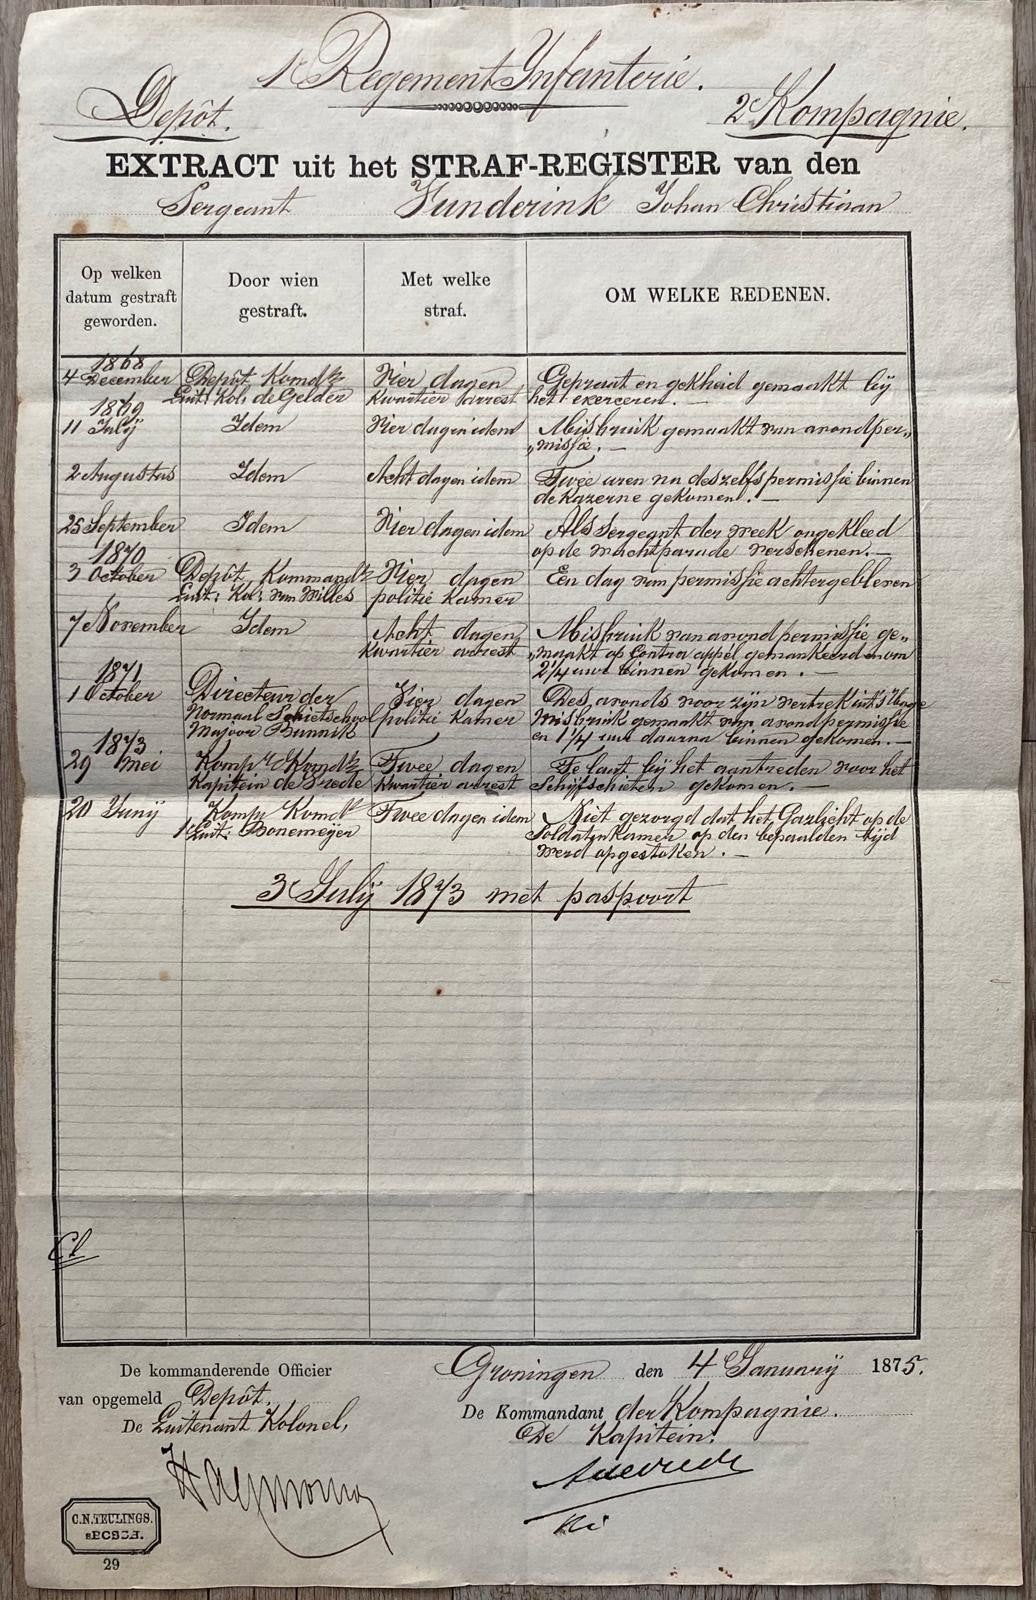 1e Regement Infanterie.
Depôt.
2e Kompagnie.
EXTRACT uit het STRAF-REGISTER van den
Sergeant Funderink Johan Christiaan
Op welken datum gestraft geworden.
Door wien gestraft.
Met welke straf.
OM WELKE REDENEN.
1868
4 December Depôt Komdt Vier dagen Gepraat en gekheid gemaakt bij
Luit: Kol: de Gelder kwartier arrest het exerceren. —
1869
11 Julij Idem Vier dagen idem Misbruik gemaakt van avondper„
„missie. —
2 Augustus Idem Acht dagen idem Twee uren na deszelfs permissie binnen
de kazerne gekomen. —
25 September Idem Vier dagen idem Als sergeant der week ongekleed
op de wachtparade verschenen. —
1870
3 October Depôt Kommandt Vier dagen Een dag van permissie achtergebleven
Luit: Kol: van Willes politie kamer
7 November Idem Acht dagen Misbruik van avondpermissie ge„
kwartier arrest „maakt op contra appèl gemankeerd en om
2 1/4 uur binnen gekomen. —
1871
1 October Directeur der Vier dagen Des avonds voor zijn vertrek uit 's Hage
Normaal Schietschool politie kamer misbruik gemaakt van avondpermissie
Majoor Bunnik en 1 1/4 uur daarna binnen gekomen. —
1873
29 Mei Kompie Komdt Twee dagen Te laat bij het aantreden voor het
Kapitein de Vrede kwartier arrest Schijfschieten gekomen. —
20 Junij Komp Komdt Twee dagen idem Niet gezorgd dat het Gazlicht op de
1e Luit: Bonemeijer Soldatenkamer op den bepaalden tijd
werd opgestoken. —
3e Julij 1873 met paspoort
De kommanderende Officier
van opgemeld Depôt.
De Luitenant Kolonel,
Groningen den 4 Januarij 1875.
De Kommandant der Kompagnie.
De Kapitein.
C.N. TEULINGS.
sBOSCH.
29